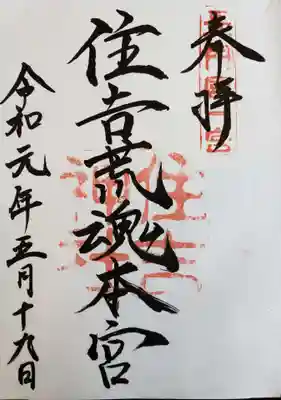 奉拝
住吉荒魂本宮
令和元年五月十九日